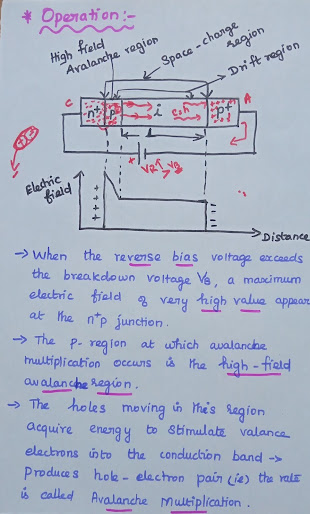 * Operation :-
High field
Avalanche region
Space-charge
region
Drift region
C
n+
P
i
P+
A
Electric
field
Distance
→ When the reverse bias voltage exceeds
the breakdown voltage VB, a maximum
electric field of very high value appear
at the n+p junction.
→ The P- region at which avalanche
multiplication occurs is the high-field
avalanche region.
→ The holes moving in this region
acquire energy to stimulate valance
electrons into the conduction band →
Produces hole-electron pair (ie) the rate
is called Avalanche Multiplication.